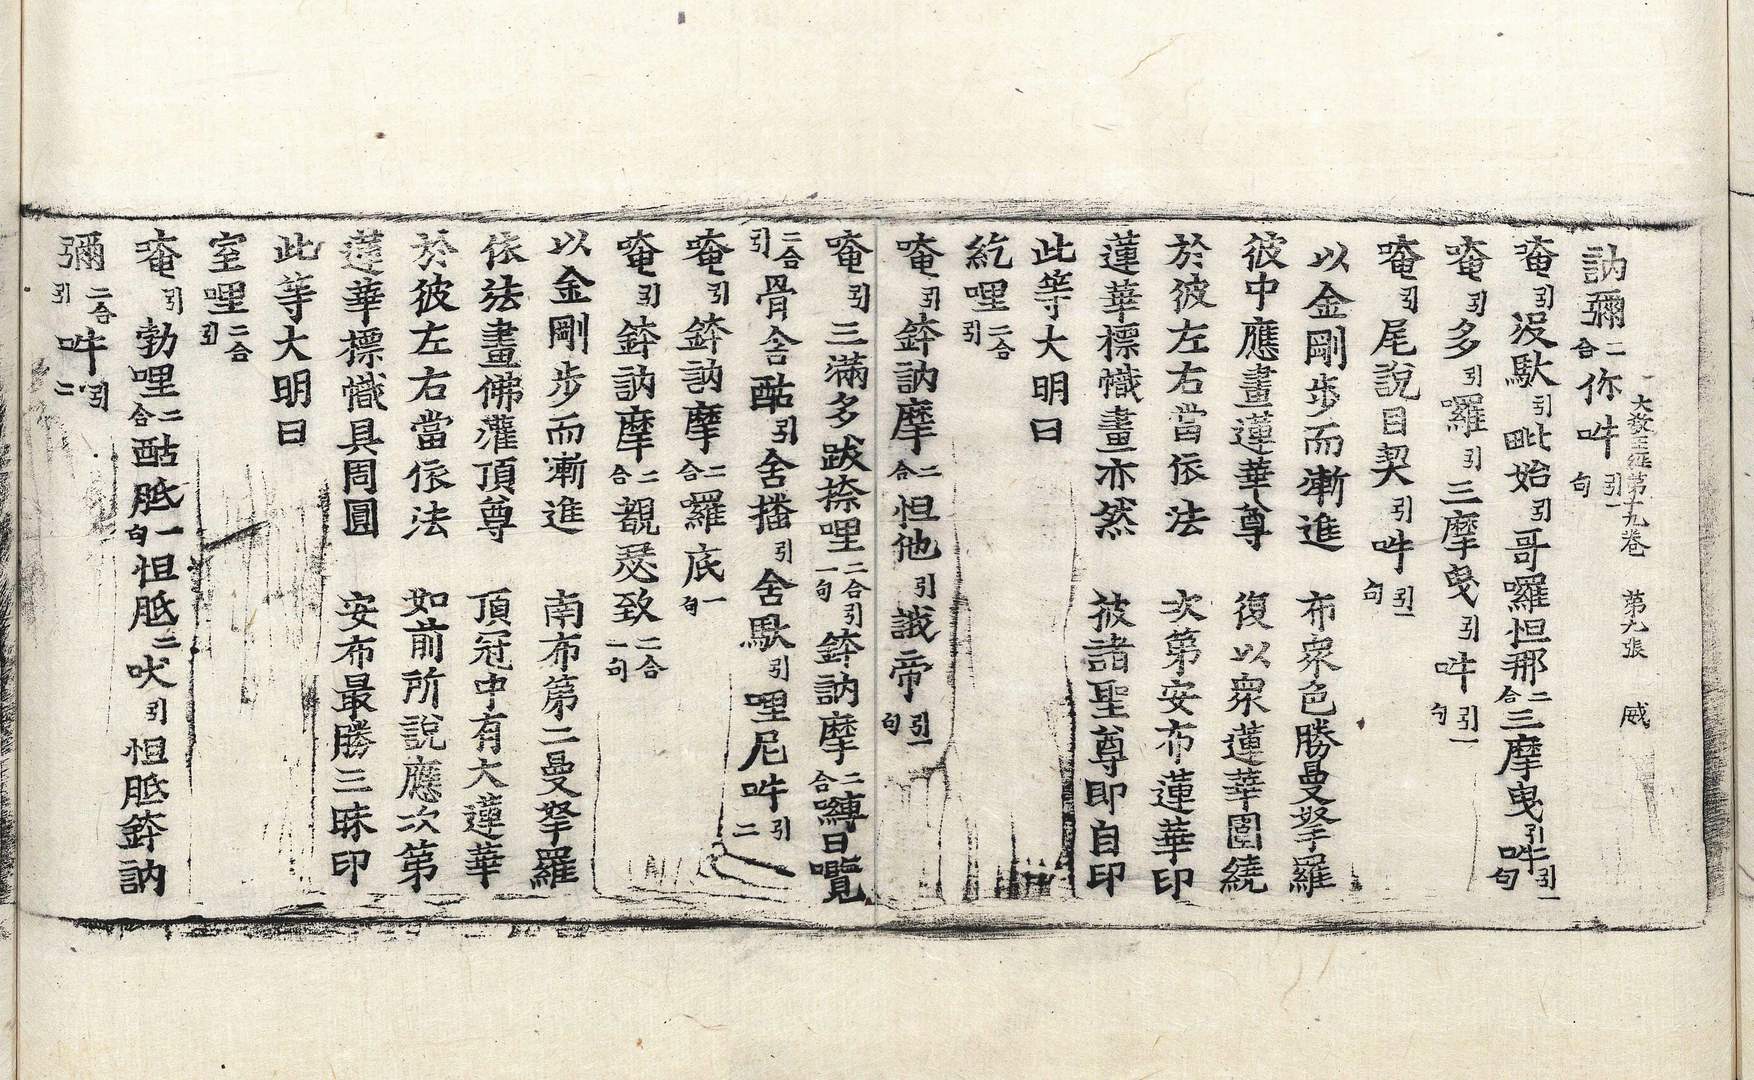 大教王經第十九卷 第九張 威
訥彌二合你吽引一句
唵引沒馱引毗始引哥囉怛那二合三摩曳引吽引一句
唵引多引囉引三摩曳引吽引一句
唵引尾說目契引吽引一句
以金剛步而漸進 布眾色勝曼拏羅
彼中應畫蓮華尊 復以眾蓮華圍繞
於彼左右當依法 次第安布蓮華印
蓮華標幟畫亦然 彼諸聖尊即自印
此等大明曰
紇哩二合引
唵引鉢訥摩二合怛他引誐帝引一句
唵引三滿多跋捺哩二合引一句鉢訥摩二合嚩日囒
二合引骨舍酤引舍播引舍馱引哩尼吽引二
唵引鉢訥摩二合羅底一句
唵引鉢訥摩二合覩瑟致二合一句
以金剛步而漸進 南布第二曼拏羅
依法畫佛灌頂尊 頂冠中有大蓮華
於彼左右當依法 如前所說應次第
蓮華標幟具周圓 安布最勝三昧印
此等大明曰
室哩二合引
唵引勃哩二合酤胝一句怛胝二吠引怛胝鉢訥
彌二合引吽引二